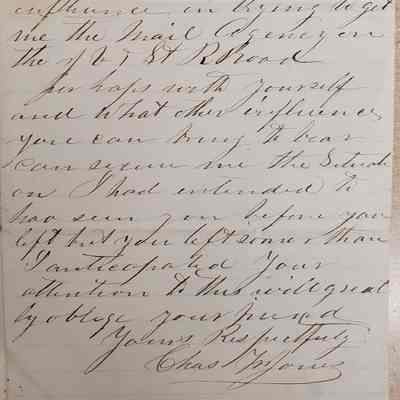 influence in trying to get
me the Mail Agency on
the & St R Road
Perhaps with yourself
and what other influence
you can bring to bear
can secure me the Situati
on I had intended to
hav seen you before you
left but you left sooner than
I anticapated Your
attention to this will great
ly oblige your friend
Yours Respectfully
Chas Jones